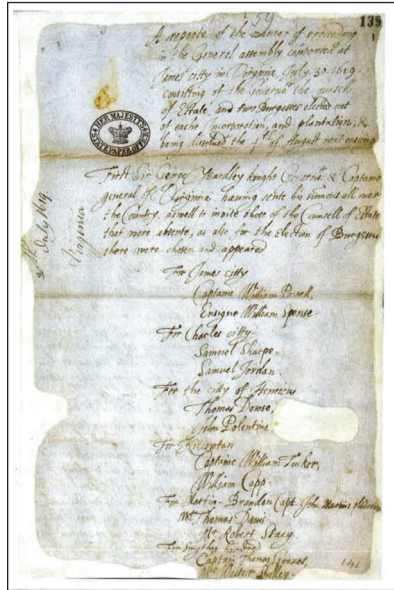 59
139
A reporte of the manner of proceeding
in the General assembly convented at
James citty in Virginia, July 30. 1619.
consisting of the Governor, the Counsell
of Estate and two Burgesses elected out
of eache Incorporation, and plantation, &
being dissolved the 4th of August next ensuing
HER MAJESTY'S
STATE PAPER OFFICE
First Sir George Yeardley Knight Governor & Captaine
general of Virginia having sente his sumons all over
the Country, aswell to invite those of the Counsell of Estate
that were absente, as also for the Election of Burgesses
there were chosen and appeared
July 1619.
Virginia
For James citty
Captaine William Powell,
Ensigne William Spense
For Charles citty.
Samuel Sharpe,
Samuel Jordan.
For the citty of Henricus
Thomas Dowse,
John Polentine
For Kiccowtan
Captaine William Tucker,
William Capp.
For Martin-Brandon Capt. John Martins
Mr Thomas Davis,
Mr Robert Stacy.
For Smythes hundred
Captain Thomas Graves,
Mr Walter Shelley.